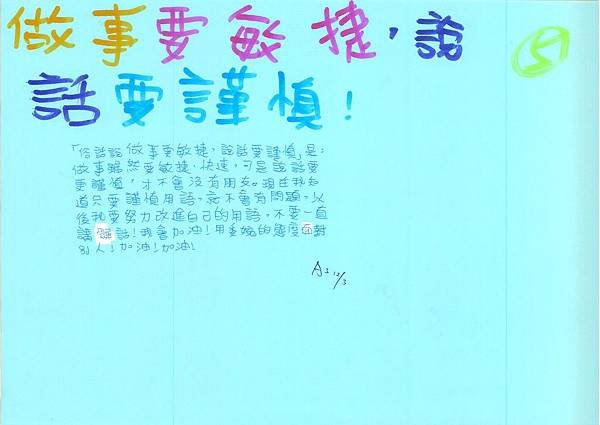 做事要敏捷，說
話要謹慎！
5
「俗話說做事要敏捷，說話要謹慎」是：
做事雖然要敏捷、快速，可是說話要
更謹慎，才不會沒有朋友。現在我知
道只要謹慎用語，就不會有問題。以
後我要努力改進自己的用語，不要一直
講話！我會加油！用委婉的態度面對
別人！加油！加油！
A 12/3